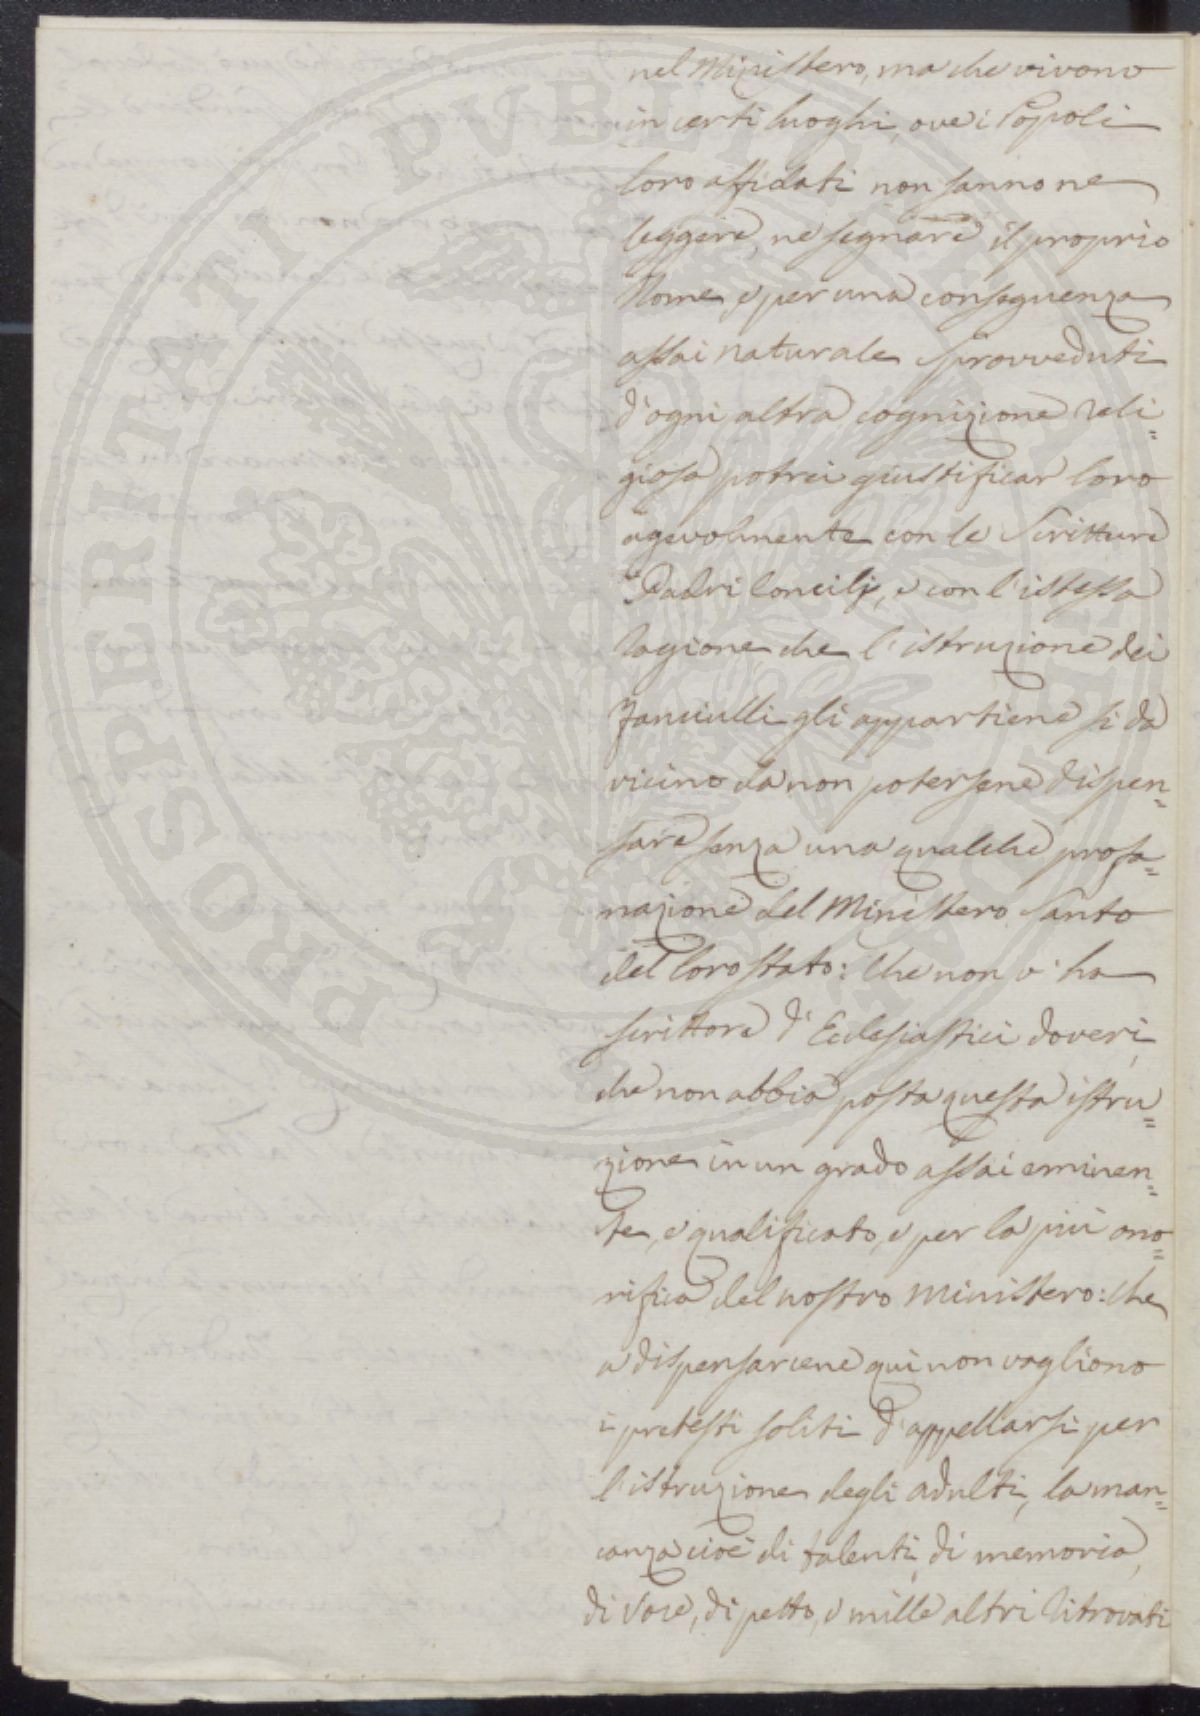 nel Ministero, ma che vivono
in certi luoghi, ove i Popoli
loro affidati non sanno ne
leggere, ne segnare il proprio
Nome, e per una conseguenza
assai naturale sprovveduti
d'ogni altra cognizione Reli=
giosa potrei giustificar loro
agevolmente con le Scritture
Padri Concilj, e con l'istessa
Ragione, che l'istruzione dei
fanciulli gli appartiene si da
vicino da non potersene dispen=
sare senza una qualche profa=
nazione del Ministero Santo
del loro stato: Che non v'ha
scrittore d'Ecclesiastici doveri,
che non abbia posta questa istru=
zione in un grado assai eminen=
te, e qualificato, e per la più ono=
rifica del nostro Ministero: Che
a dispensarcene quì non vagliono
i pretesti soliti d'appellarsi per
l'istruzione degli adulti, la man=
canza cioè di talenti, di memoria,
di Voce, di petto, e mille altri Ritrovati
PROSPERITATI PVBLICAE